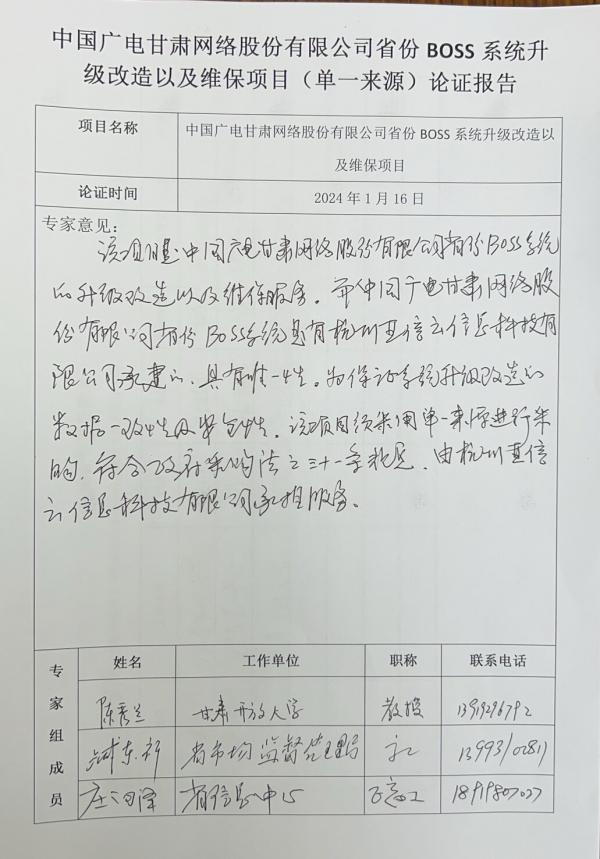 中国广电甘肃网络股份有限公司省份 BOSS 系统升
级改造以及维保项目（单一来源）论证报告
项目名称
中国广电甘肃网络股份有限公司省份 BOSS 系统升级改造以
及维保项目
论证时间
2024 年 1 月 16 日
专家意见：
该项目是中国广电甘肃网络股份有限公司省份BOSS系统
的升级改造以及维保服务。而中国广电甘肃网络股
份有限公司省份BOSS系统是有杭州直信云信息科技有
限公司承建的，具有唯一性。为保证系统升级改造的
数据一致性及安全性，该项目须采用单一来源进行采
购，符合政府采购法之三十一条规定，由杭州直信
云信息科技有限公司承担服务。
专家组成员
姓名 工作单位 职称 联系电话
陈秀兰 甘肃开放大学 教授
东 省市场监督管理局
省信息中心 高工